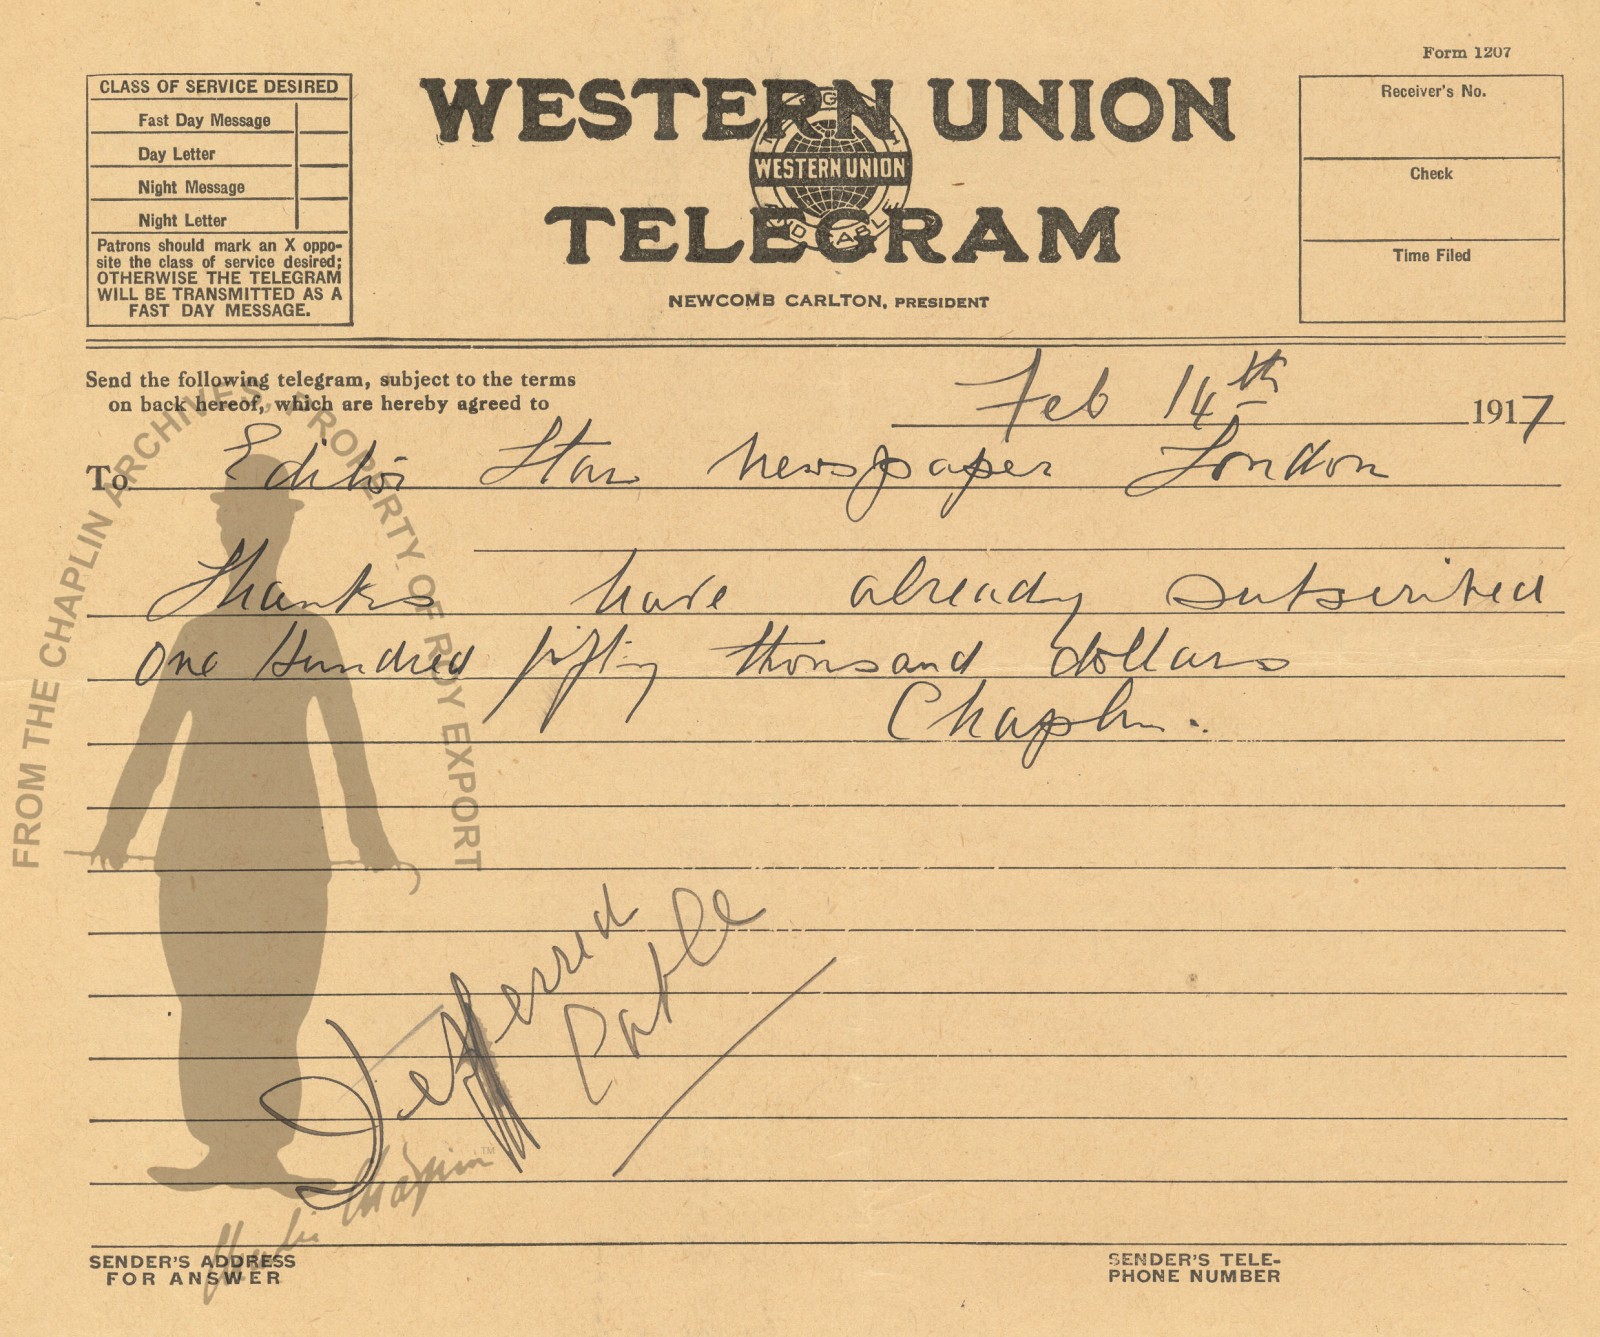 Form 1207
CLASS OF SERVICE DESIRED
Fast Day Message
Day Letter
Night Message
Night Letter
Patrons should mark an X oppo-
site the class of service desired;
OTHERWISE THE TELEGRAM
WILL BE TRANSMITTED AS A
FAST DAY MESSAGE.
WESTERN UNION
WESTERN UNION
TELEGRAM
NEWCOMB CARLTON, PRESIDENT
Receiver's No.
Check
Time Filed
Send the following telegram, subject to the terms
on back hereof, which are hereby agreed to
Feb 14th 1917
To Editor Star Newspaper London
Thanks have already subscribed
one Hundred fifty thousand dollars
Chaplin.
Defferred
Cable
FROM THE CHAPLIN ARCHIVES, PROPERTY OF ROY EXPORT
Charlie Chaplin™
SENDER'S ADDRESS
FOR ANSWER
SENDER'S TELE-
PHONE NUMBER